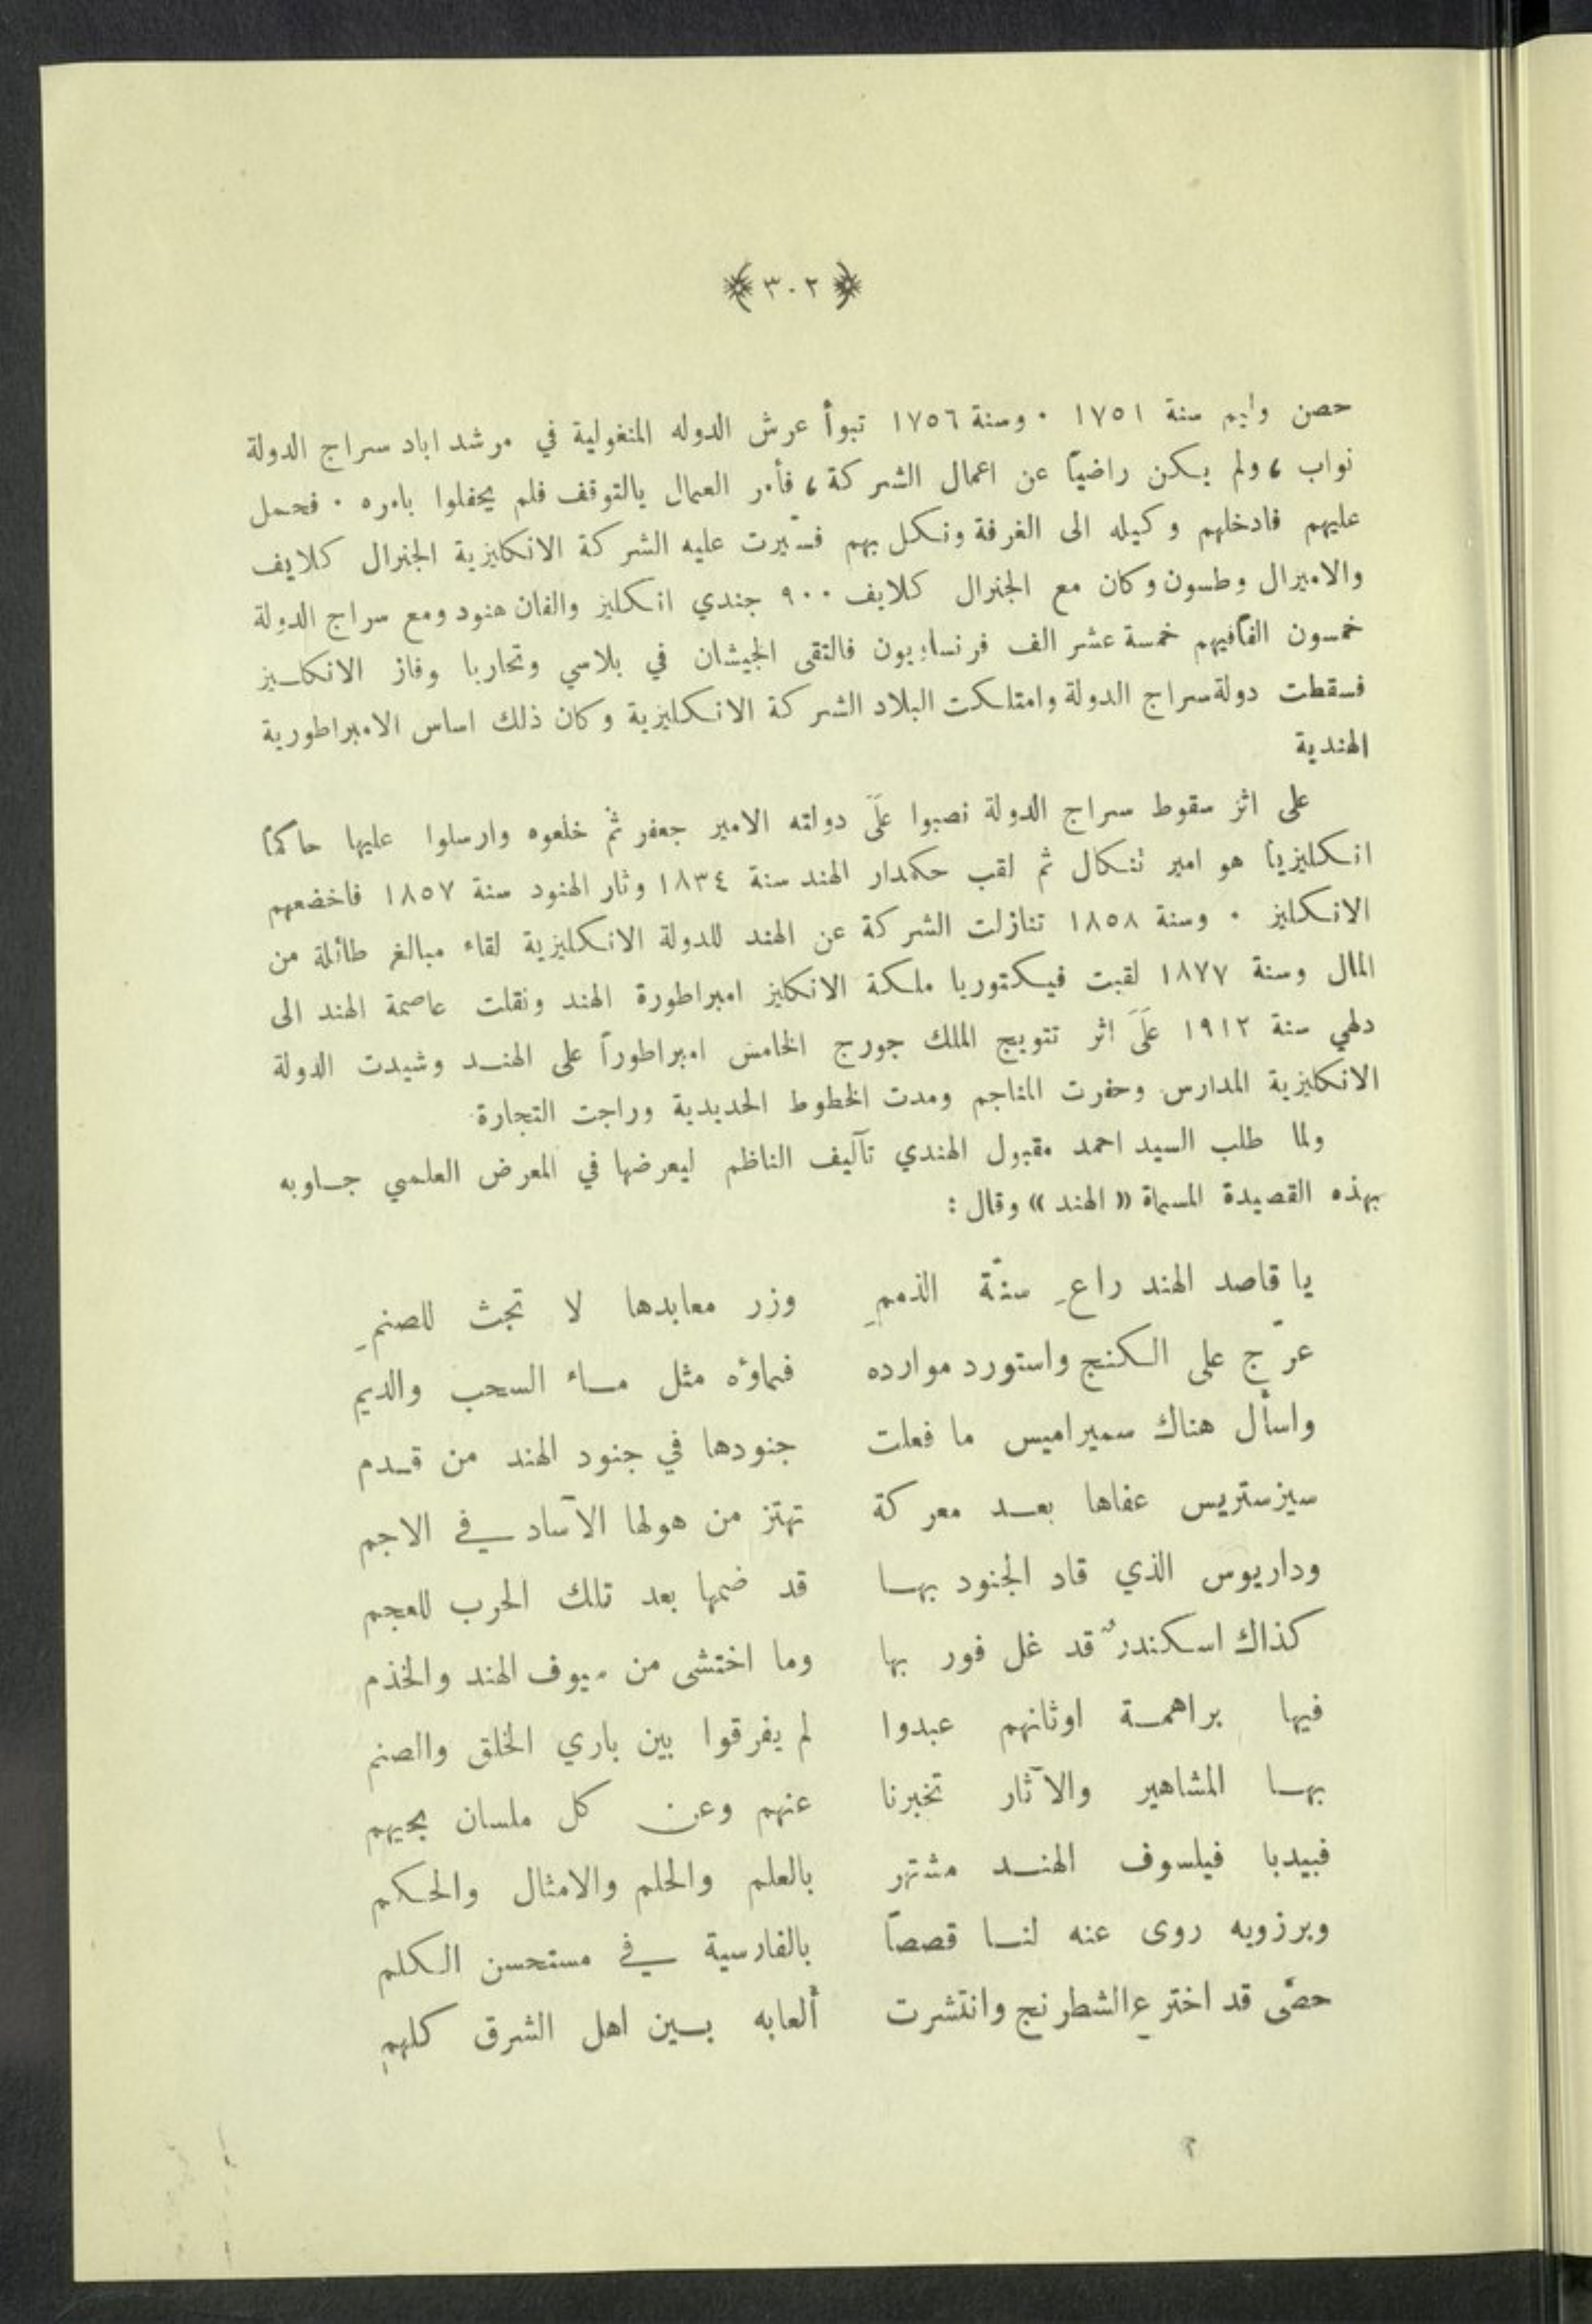 ﴿ ٣٠٢ ﴾
حصن وليم سنة ١٧٥١ . وسنة ١٧٥٦ تبوأ عرش الدوله المنغولية في مرشد اباد سراج الدولة
نواب ، ولم يكن راضياً عن اعمال الشركة ، فأمر العمال بالتوقف فلم يحفلوا بامره . فحمل
عليهم فادخلهم وكيله الى الغرفة ونكل بهم فسيّرت عليه الشركة الانكليزية الجنرال كلايف
والاميرال وطسون وكان مع الجنرال كلايف ٩٠٠ جندي انكليز والفان هنود ومع سراج الدولة
خمسون الفاً فيهم خمسة عشر الف فرنساويون فالتقى الجيشان في بلاسي وتحاربا وفاز الانكليز
فسقطت دولة سراج الدولة وامتلكت البلاد الشركة الانكليزية وكان ذلك اساس الامبراطورية
الهندية
على اثر سقوط سراج الدولة نصبوا عَلَى دولته الامير جعفر ثم خلعوه وارسلوا عليها حاكماً
انكليزياً هو امير بنكال ثم لقب حكمدار الهند سنة ١٨٣٤ وثار الهنود سنة ١٨٥٧ فاخضعهم
الانكليز . وسنة ١٨٥٨ تنازلت الشركة عن الهند للدولة الانكليزية لقاء مبالغ طائلة من
المال وسنة ١٨٧٧ لقبت فيكتوريا ملكة الانكليز امبراطورة الهند ونقلت عاصمة الهند الى
دلهي سنة ١٩١٢ عَلَى اثر تتويج الملك جورج الخامس امبراطوراً على الهند وشيدت الدولة
الانكليزية المدارس وحفرت المناجم ومدت الخطوط الحديدية وراجت التجارة
ولما طلب السيد احمد مقبول الهندي تآليف الناظم ليعرضها في المعرض العلمي جاوبه
بهذه القصيدة المسماة « الهند » وقال :
يا قاصد الهند راعِ سنّة الذممِ وزر معابدها لا تجث للصنمِ
عرّج على الكنج واستورد موارده فماؤه مثل ماء السحب والديم
واسأل هناك سميراميس ما فعلت جنودها في جنود الهند من قدم
سيزستريس عفاها بعد معركة تهتز من هولها الآساد في الاجم
وداريوس الذي قاد الجنود بها قد ضمها بعد تلك الحرب للعجم
كذاك اسكندرٌ قد غل فور بها وما اختشى من سيوف الهند والخذم
فيها براهمة اوثانهم عبدوا لم يفرقوا بين باري الخلق والصنم
بها المشاهير والآثار تخبرنا عنهم وعن كل ملسان بحيهم
فبيدبا فيلسوف الهند مشتهر بالعلم والحلم والامثال والحكم
وبرزويه روى عنه لنا قصصاً بالفارسية في مستحسن الكلم
حصّى قد اخترع الشطرنج وانتشرت ألعابه بين اهل الشرق كلهمِ